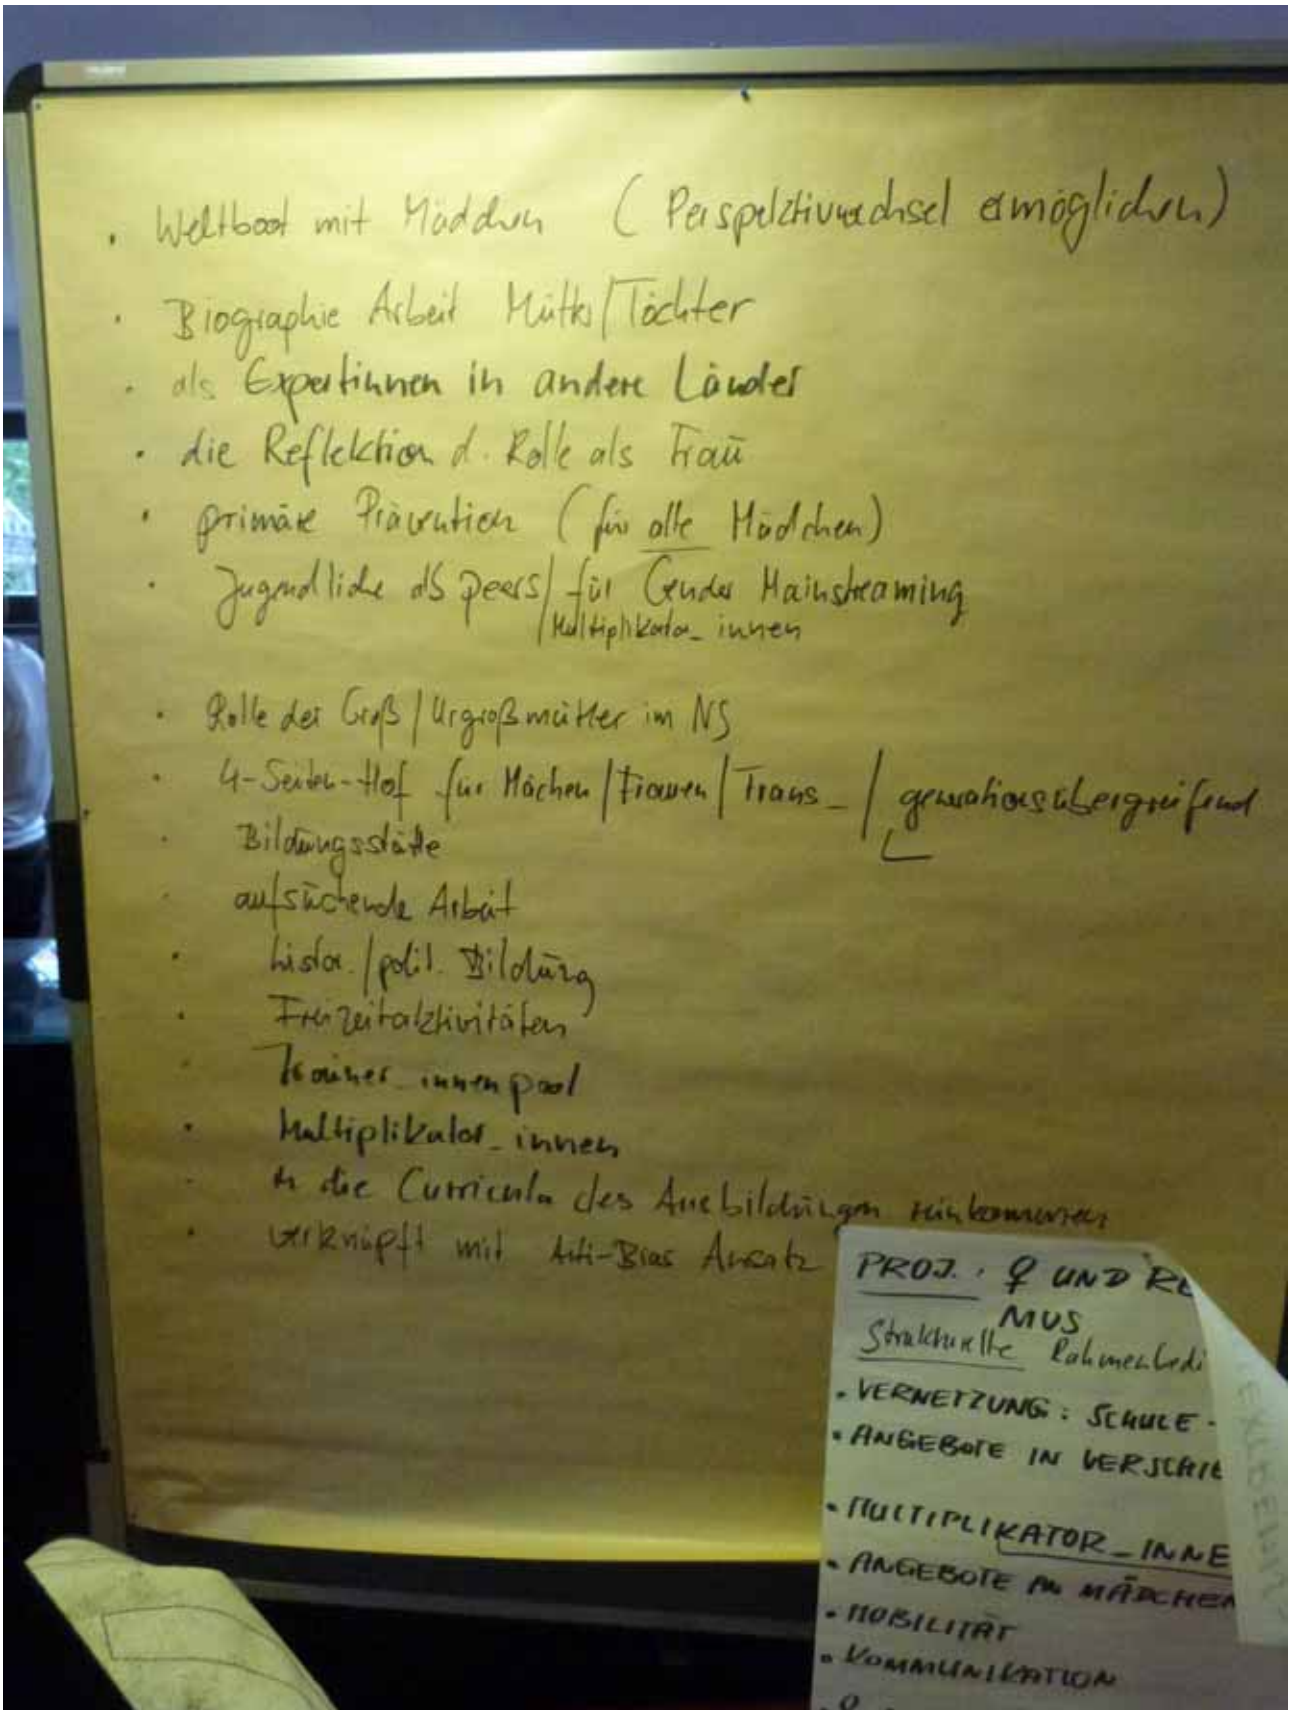 • Weltboot mit Mädchen (Perspektivwechsel ermöglichen)
• Biographie Arbeit Mütter/Töchter
• als Expertinnen in andere Länder
• die Reflektion d. Rolle als Frau
• primäre Prävention (für alle Mädchen)
• Jugendliche als peers/für Gender Mainstreaming
/Multiplikator_innen
• Rolle der Groß/Urgroßmütter im NS
• 4-Seiten-Hof für Mächen/Frauen/Trans_/generationsübergreifend
• Bildungsstätte
• aufsuchende Arbeit
• histor./polit. Bildung
• Freizeitaktivitäten
• Trainer_innenpool
• Multiplikator_innen
• in die Curricula des Ausbildungen reinkommen
• verknüpft mit Anti-Bias Ansatz
PROJ.: ♀ UND RE
MUS
Strukturelle Rahmenbedi
• VERNETZUNG: SCHULE -
• ANGEBOTE IN VERSCHIE
• MULTIPLIKATOR_INNE
• ANGEBOTE AN MÄDCHEN
• MOBILITÄT
• KOMMUNIKATION